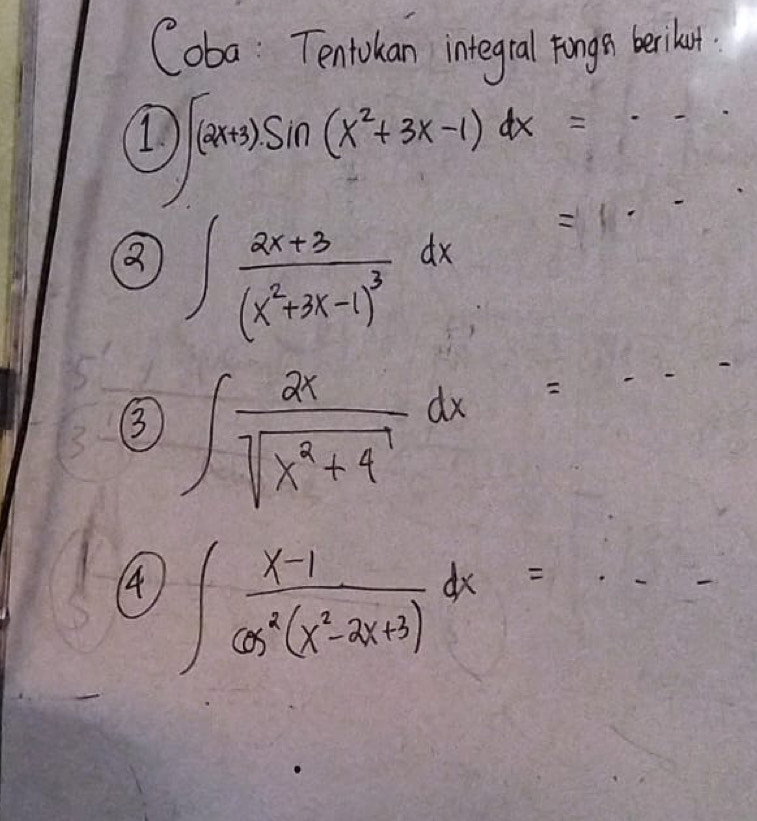 Coba : Tentukan integral Fungsi berikut.
1. ∫(2x+3).Sin (x²+3x-1) dx = - - -
2 ∫ (2x+3)/(x²+3x-1)³ dx = - - -
3 ∫ 2x/√(x²+4) dx = - - -
4 ∫ (x-1)/(cos²(x²-2x+3)) dx = - - -